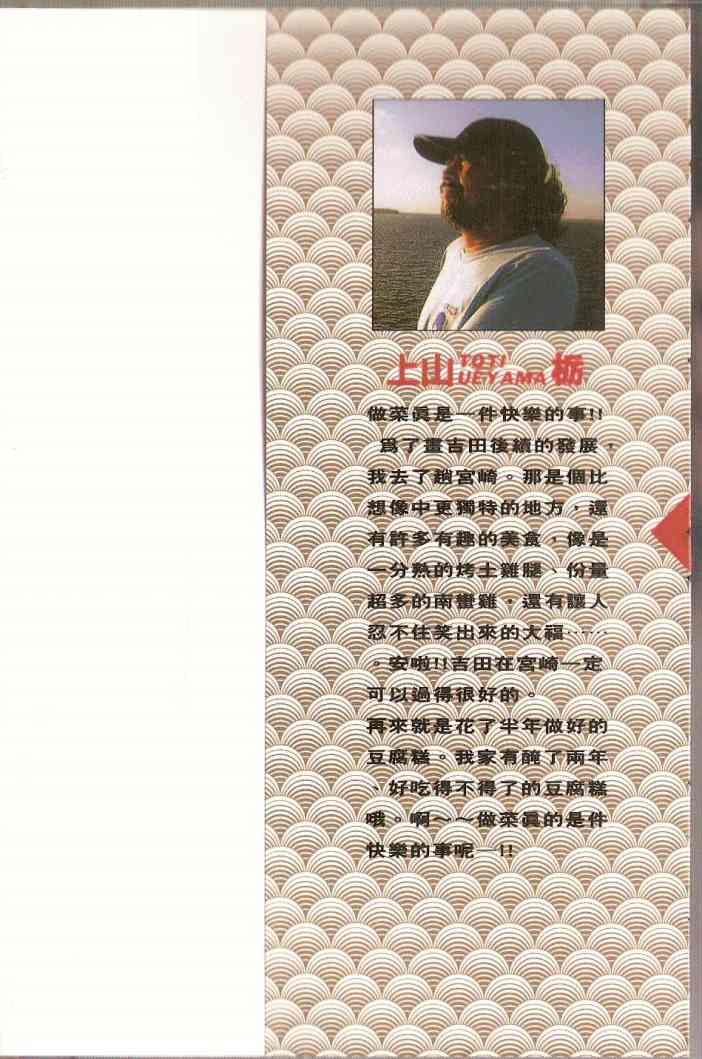 上山 TOTI UEYAMA 栃
做菜眞是一件快樂的事!!
為了畫吉田後續的發展，
我去了趟宮崎。那是個比
想像中更獨特的地方，還
有許多有趣的美食，像是
一分熟的烤土雞腿、份量
超多的南蠻雞，還有讓人
忍不住笑出來的大福……
。安啦!!吉田在宮崎一定
可以過得很好的。
再來就是花了半年做好的
豆腐糕。我家有醃了兩年
、好吃得不得了的豆腐糕
哦。啊～～做菜眞的是件
快樂的事呢─!!